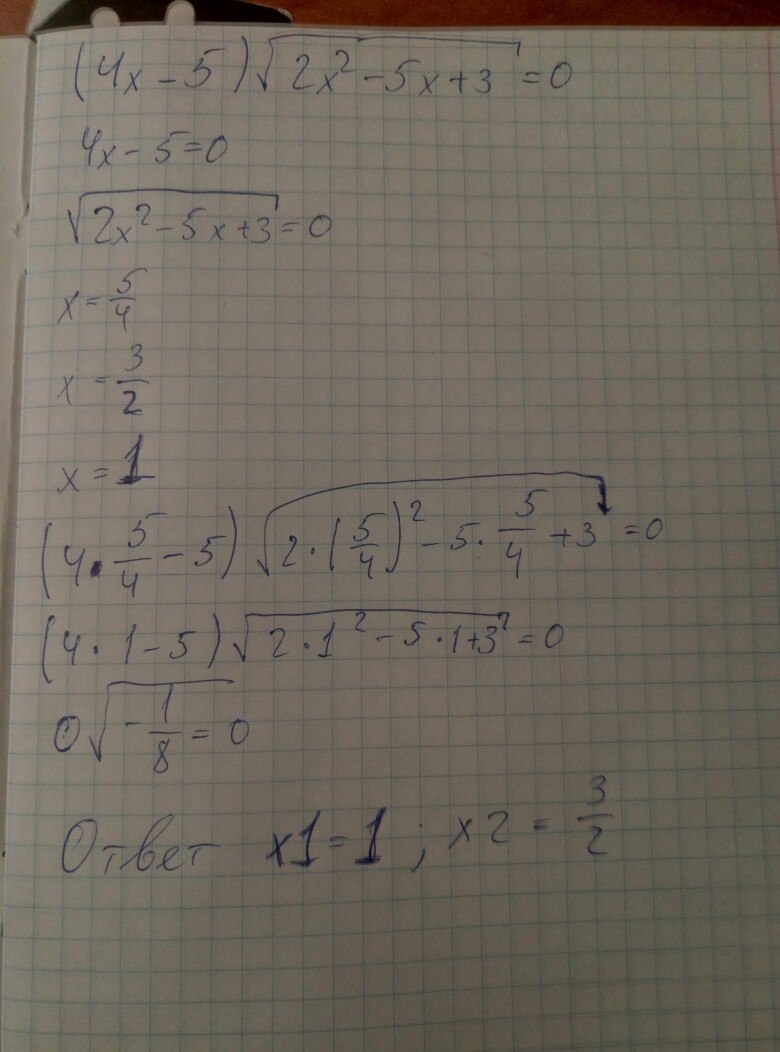 (4x-5)√(2x²-5x+3)=0
4x-5=0
√(2x²-5x+3)=0
x=5/4
x=3/2
x=1
(4·5/4-5)√(2·(5/4)²-5·5/4+3)=0
(4·1-5)√(2·1²-5·1+3)=0
0√(-1/8)=0
Ответ x1=1; x2=3/2